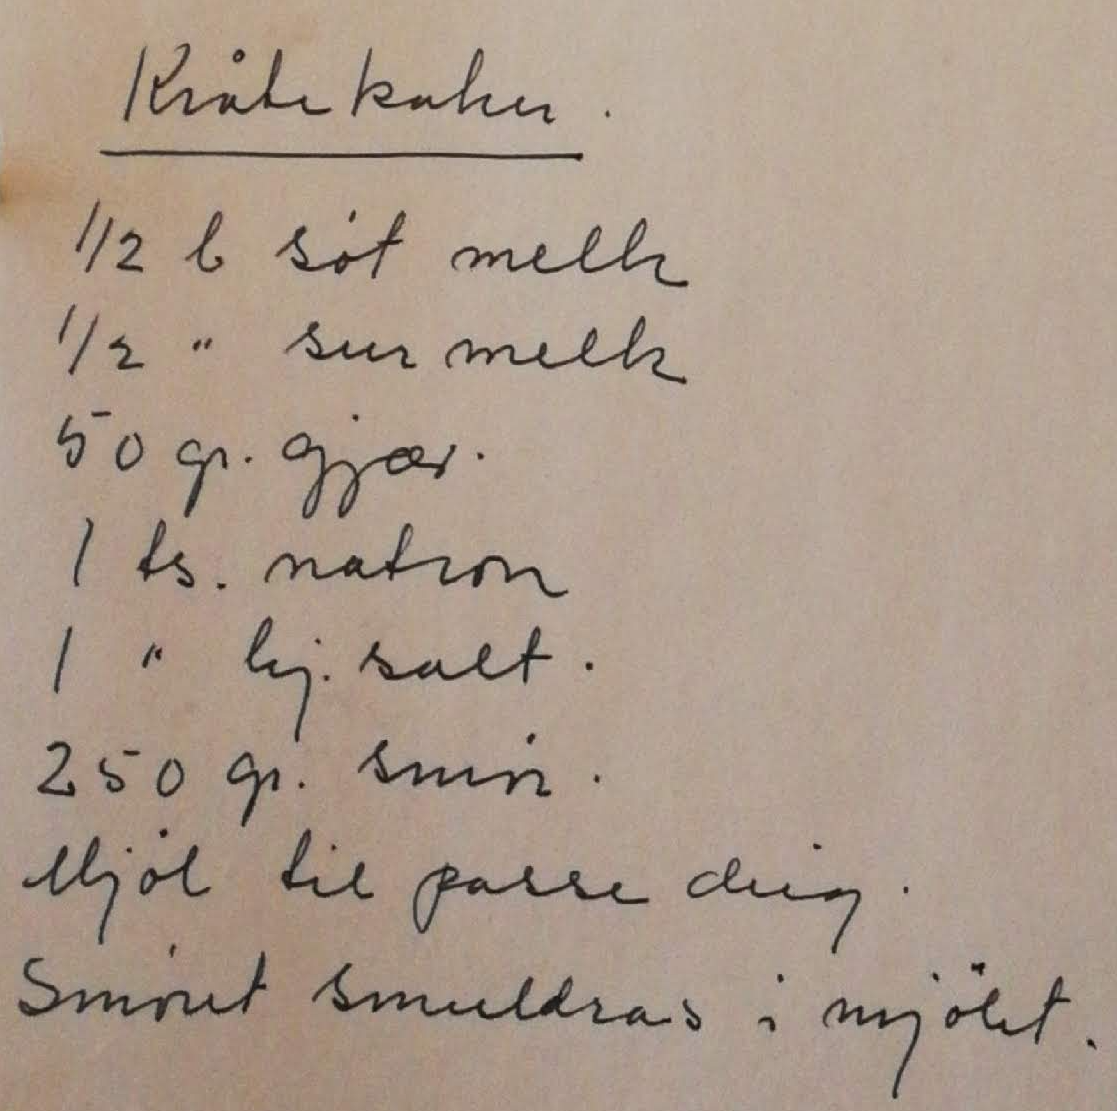 Kråtekaker.
1/2 l søt melk
1/2 " sur melk
50 gr. gjær.
1 ts. natron
1 " hj. salt.
250 gr. smør.
Mjøl til passe deig.
Smøret smuldras i mjölet.